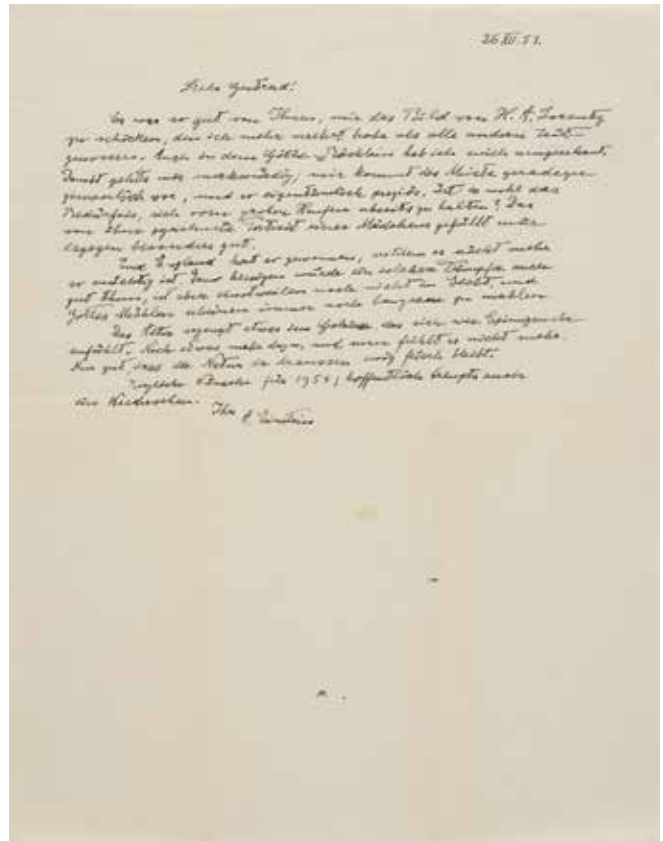 26 XII 53.
Liebe Gertrud!
Es war so gut von Ihnen, mir das Bild von H. A. Lorentz
zu schicken, den ich mehr verehrt habe als alle anderen Zeit-
genossen. Auch in dem Göthe Büchlein hab ich mich umgeschaut.
Sonst gehts mir merkwürdig; mir kommt das Meiste geradezu
vor, und so eigentümlich preziös. Ist es wohl das
Bedürfnis, sich vom groben Haufen abseits zu halten? Das
von Ihnen gezeichnete Portrait eines Mädchens gefällt mir
dagegen besonders gut.
England hat so gewonnen, seitdem es nicht mehr
so mächtig ist. Den hiesigen würde ein solcher Dämpfer auch
gut thun, ist aber einstweilen noch nicht in Sicht, und
Gottes Mühlen scheinen immer noch langsam zu mahlen.
Das Alter erzeugt etwas im Gehirn das sich wie Spinngewebe
anfühlt. Noch etwas mehr davon, und man fühlt es nicht mehr.
Nur gut, dass die Natur da draussen ewig frisch bleibt.
Herzliche Wünsche für 1954; hoffentlich bringts auch
ein Wiedersehen.
Ihr A. Einstein